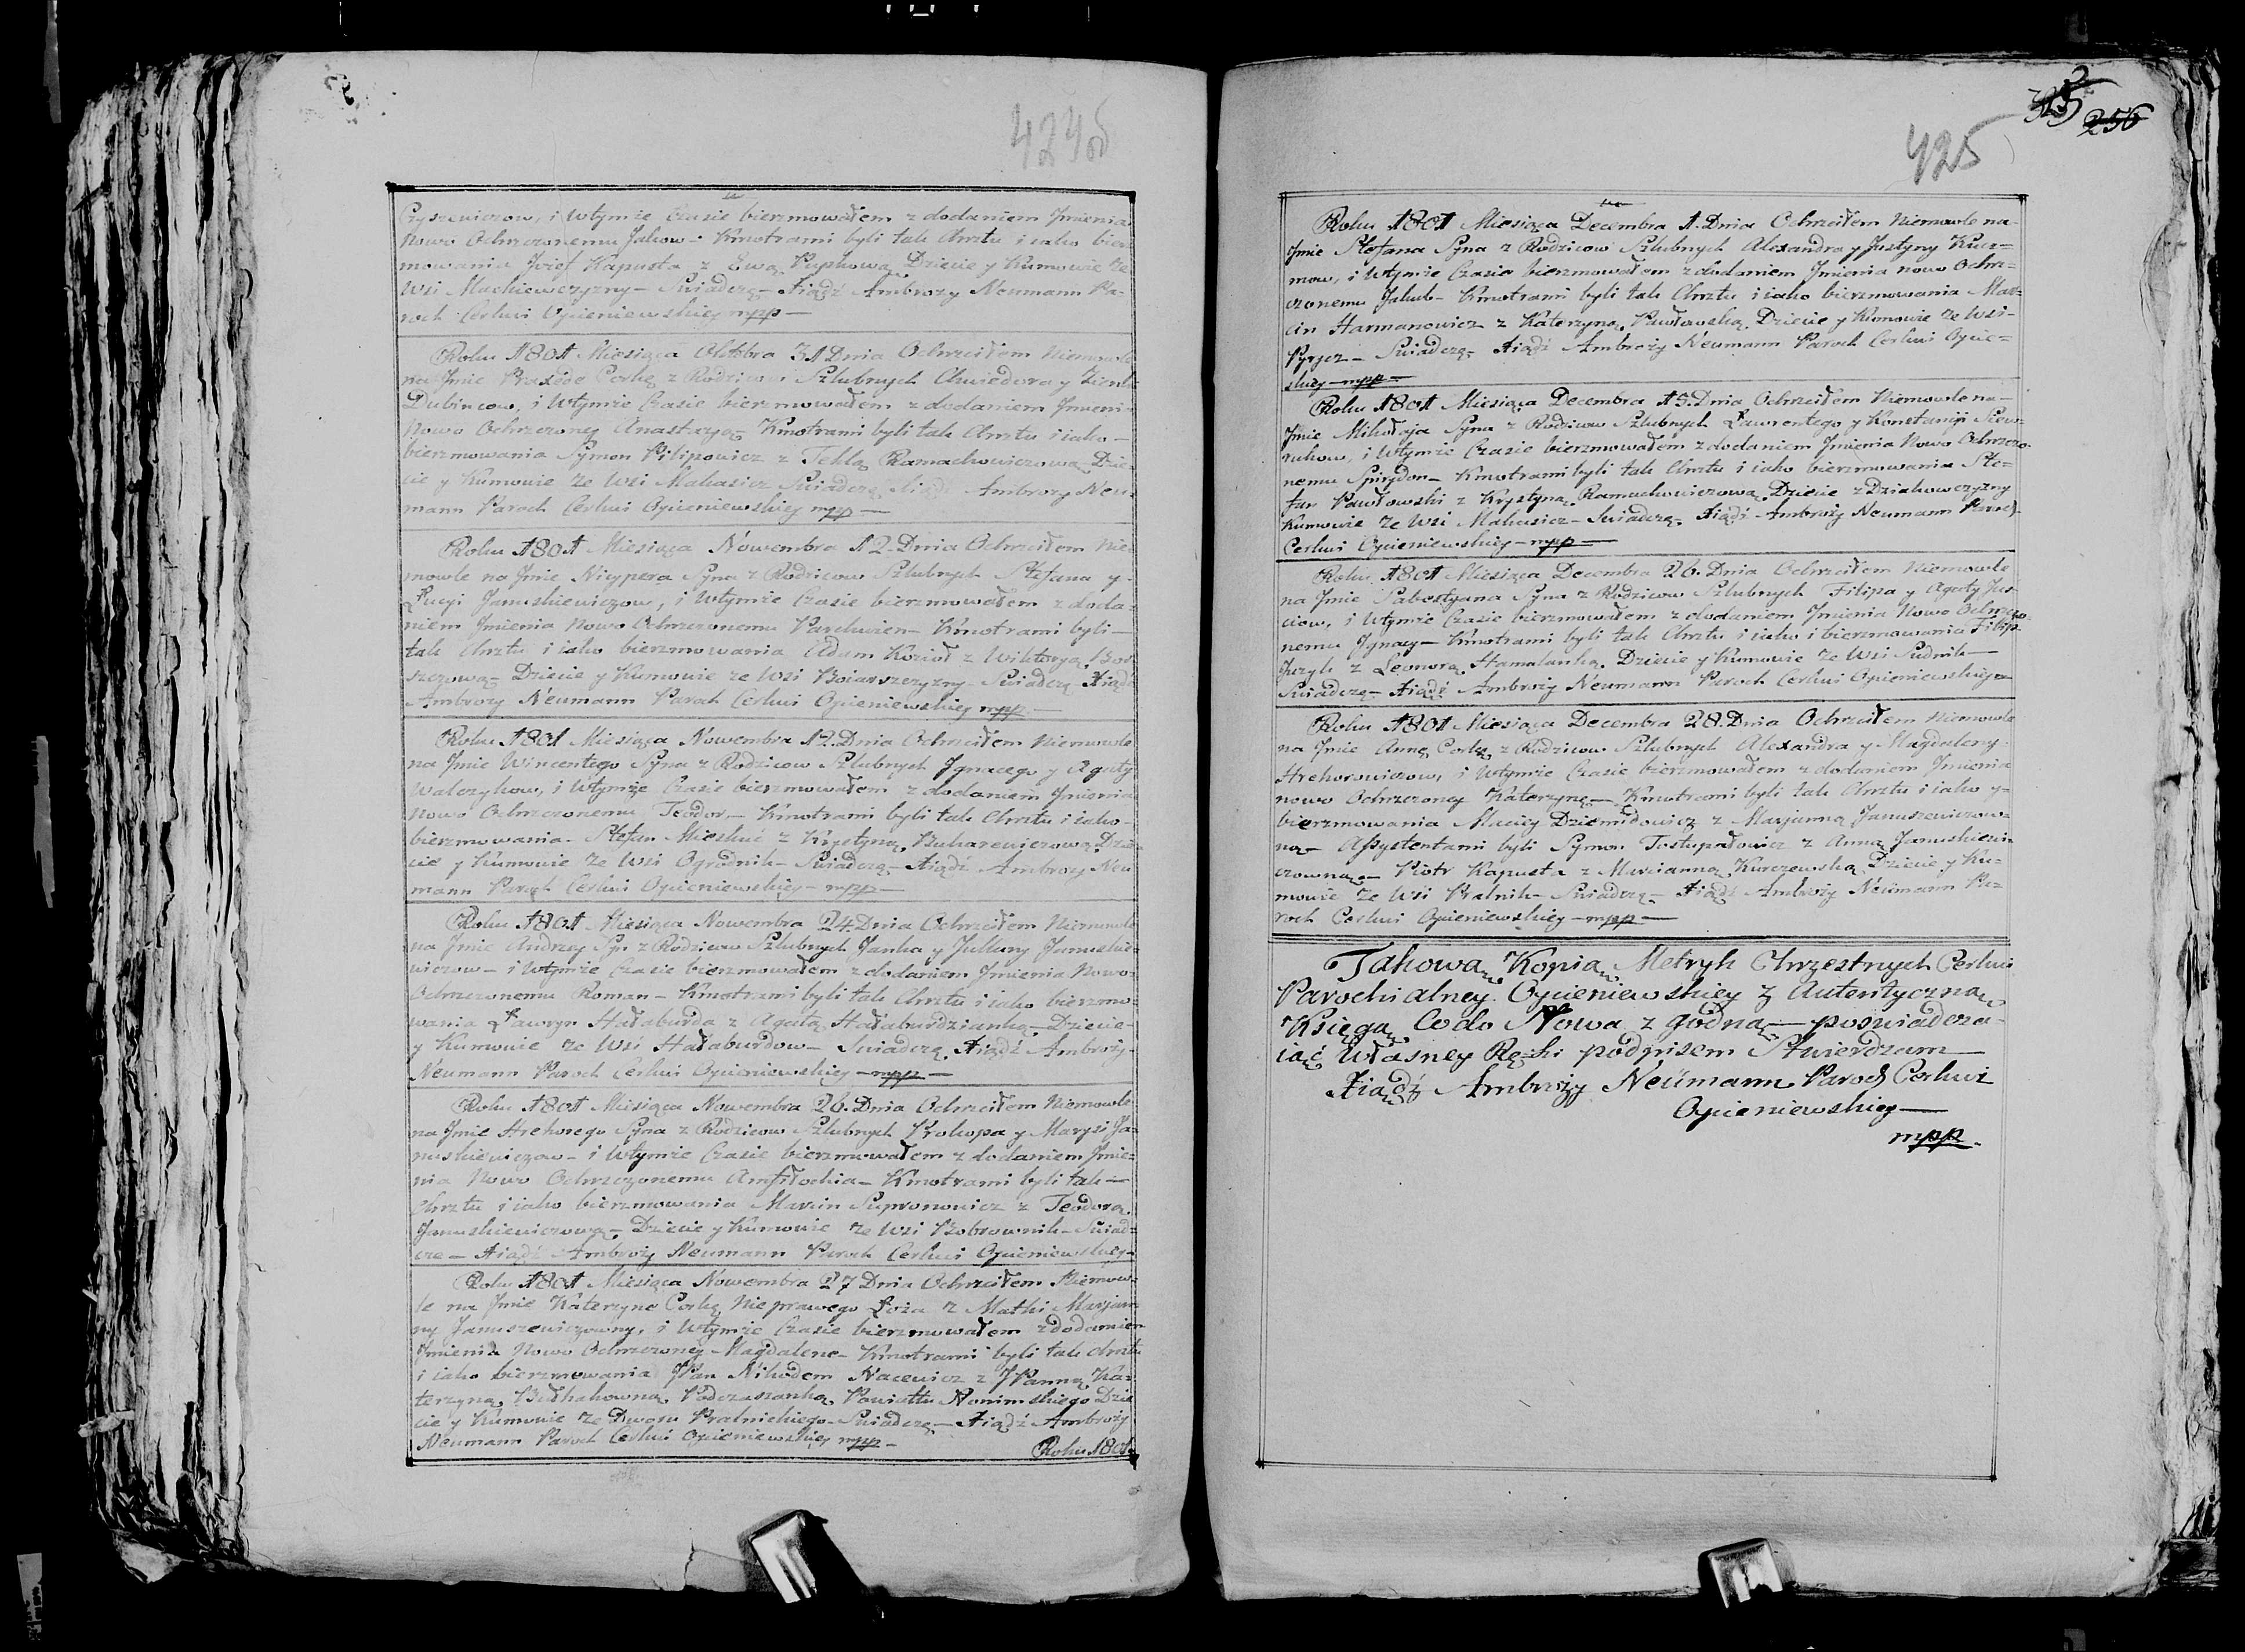 424 об
Cyszewiczow, i wtymże Czasie bierzmowałem z dodaniem Jmienia
Nowo Ochrzczonemu Jakow – Kmotrami byli tak Chrztu i iako bierz-
mowania Jozef Kapusta z Ewą Pupkową Dziecie y Kumowie ze
Wsi Mackiewczyzny – Swiadczę – Xiądz Ambroży Neumann Pa-
roch Cerkwi Opieniewskiey mpp –
Roku 1801 Miesiąca Oktobra 31 Dnia Ochrzciłem Niemowle
na Jmie Praxede Corkę z Rodzicow Szlubnych Chwiedora y
Dubincow, i wtymże Czasie bierzmowałem z dodaniem Jmieni-
Nowo Ochrzczoney Anastazyą – Kmotrami byli tak Chrztu i iako –
bierzmowania Symon Filipowicz z Teklą Ramachowiczową Dzie-
cie y Kumowie ze Wsi Makasicz Swiadczę Xiądz Ambroży Neu-
mann Paroch Cerkwi Opieniewskiey mpp –
Roku 1801 Miesiąca Nowembra 12 Dnia Ochrzciłem Nie-
mowle na Jmie Nicypera Syna z Rodzicow Szlubnych Stefana y
Łucyi Januskiewiczow, i wtymże Czasie bierzmowałem z doda-
niem Jmienia Nowo Ochrzczonemu Parchwien – Kmotrami byli –
tak Chrztu i iako bierzmowania Adam Kozioł z Wiktoryą Bor-
szczową – Dziecie y Kumowie ze Wsi Boiarszczyzny Swiadczę Xiądz
Ambroży Neumann Paroch Cerkwi Opieniewskiey mpp –
Roku 1801 Miesiąca Nowembra 12. Dnia Ochrzciłem Niemowle
na Jmie Wincentego Syna z Rodzicow Szlubnych Jgnacego y Agaty
Walczykow, i wtymże Czasie bierzmowałem z dodaniem Jmienia
Nowo Ochrzczonemu Teodor – Kmotrami byli tak Chrztu i iako –
bierzmowania – Stefan Mieskuć z Krystyną Bukarewiczową Dzie-
cie y Kumowie ze Wsi Ogrodnik – Swiadczę – Xiądz Ambroży Neu
mann Paroch Cerkwi Opieniewskiey – mpp –
Roku 1801 Miesiąca Nowembra 24 Dnia Ochrzciłem Niemowle
na Jmie Andrzey Syn z Rodzicow Szlubnych Janka y Julianny Januskie-
wiczow – i wtymże Czasie bierzmowałem z dodaniem Jmienia Nowo-
Ochrzczonemu Roman – Kmotrami byli tak Chrztu i iako bierzmo-
wania Ławryn Hałaburda z Agatą Hałaburdzianką – Dziecie –
y Kumowie ze Wsi Hałaburdow – Swiadczę Xiądz Ambroży –
Neumann Paroch Cerkwi Opieniewskiey – mpp –
Roku 1801 Miesiąca Nowembra 26. Dnia Ochrzciłem Niemowle
na Jmie Hrehorego Syna z Rodzicow Szlubnych Prokopa y Marysi Ja-
nuskiewiczow – i wtymże Czasie bierzmowałem z dodaniem Jmie-
nia Nowo Ochrzczonemu Amfiłochia – Kmotrami byli tak –
Chrztu i iako bierzmowania Marcin Supronowicz z Teodorą
Januskiewiczową – Dziecie y Kumowie ze Wsi Bobrownik – Swiad-
cze – Xiądz Ambroży Neumann Paroch Cerkwi Opieniewskiey –
Roku 1801 Miesiąca Nowembra 27 Dnia Ochrzciłem Niemow-
le na Jmie Katerzyne Corkę Nieprawego Łoża z Matki Maryan-
ny Januszewiczowny, i wtymże Czasie bierzmowałem z dodaniem
Jmienia Nowo Ochrzczoney – Magdalene – Kmotrami byli tak Chrztu
i iako bierzmowania JPan Nikodem Nacewicz z JPanną Ka-
terzyną Podczaszanką Powiattu Słonimskiego Dzie
cie y Kumowie ze Dworu Pralnickiego – Swiadczę – Xiądz Ambroży
Neumann Paroch Cerkwi Opieniewskiey mpp –
Roku 1801
425
256
Roku 1801 Miesiąca Decembra 1. Dnia Ochrzciłem Niemowle na-
Jmie Stefana Syna z Rodzicow Szlubnych Alexandra y Justyny Kucz-
mow, i wtymże Czasie bierzmowałem z dodaniem Jmienia nowo Ochrz-
czonemu Jakub – Kmotrami byli tak Chrztu i iako bierzmowania Mar-
cin Harmanowicz z Katerzyną Pawłowską Dziecie y Kumowie ze Wsi –
Pyrjez – Swiadczę – Xiądz Ambroży Neumann Paroch Cerkwi Opie-
skiey – mpp –
Roku 1801 Miesiąca Decembra 15. Dnia Ochrzciłem Niemowle na –
Jmie Mikołaja Syna z Rodzicow Szlubnych Ławrentego y Konstancji Siew-
rukow, i wtymże Czasie bierzmowałem z dodaniem Jmienia Nowo Ochrzczo-
nemu Spirydon – Kmotrami byli tak Chrztu i iako bierzmowania Ste-
fan Pawłowski z Krystyną Ramachowiczową Dziecie z Dziakowczyzny
Kumowie ze Wsi Makasicz – Swiadczę – Xiądz Ambroży Neumann Paroch
Cerkwi Opieniewskiey – mpp –
Roku 1801 Miesiąca Decembra 26. Dnia Ochrzciłem Niemowle
na Jmie Sabestyana Syna z Rodzicow Szlubnych Filipa y Agaty Jus-
ciow, i wtymże Czasie bierzmowałem z dodaniem Jmienia Nowo Ochrzczo-
nemu Jgnacy – Kmotrami byli tak Chrztu i iako i bierzmowania Filip
Juzyk z Leonorą Hamalanką Dziecie y Kumowie ze Wsi Sudnik –
Swiadczę – Xiądz Ambroży Neumann Paroch Cerkwi Opieniewskiey –
Roku 1801 Miesiąca Decembra 28. Dnia Ochrzciłem Niemowle
na Jmie Annę Corkę z Rodzicow Szlubnych Alexandra y Magdaleny –
Hrehorowiczow, i wtymże Czasie bierzmowałem z dodaniem Jmienia
nowo Ochrzczoney Katerzynę – Kmotrami byli tak Chrztu i iako y –
bierzmowania Maciey Dziemidowicz z Maryanną Januszewiczow-
ną – Assystentami byli Symon Tostupałowicz z Anną Januskiewi-
czowną – Piotr Kapusta z Marcianną Kurczewską Dziecie y Ku-
mowie ze Wsi Pralnik – Swiadczę – Xiądz Ambroży Neumann Pa-
roch Cerkwi Opieniewskiey – mpp –
Takową Kopią Metryk Chrzestnych Cerkwi
Parochialney Opieniewskiey z Autentyczną
Księgą Codo Słowa zgodną – poswiadcza-
iąć Własney Ręki podpisem Stwierdzam –
Xiądz Ambroży Neümann Paroch Cerkwi
Opieniewskiey –
mpp.